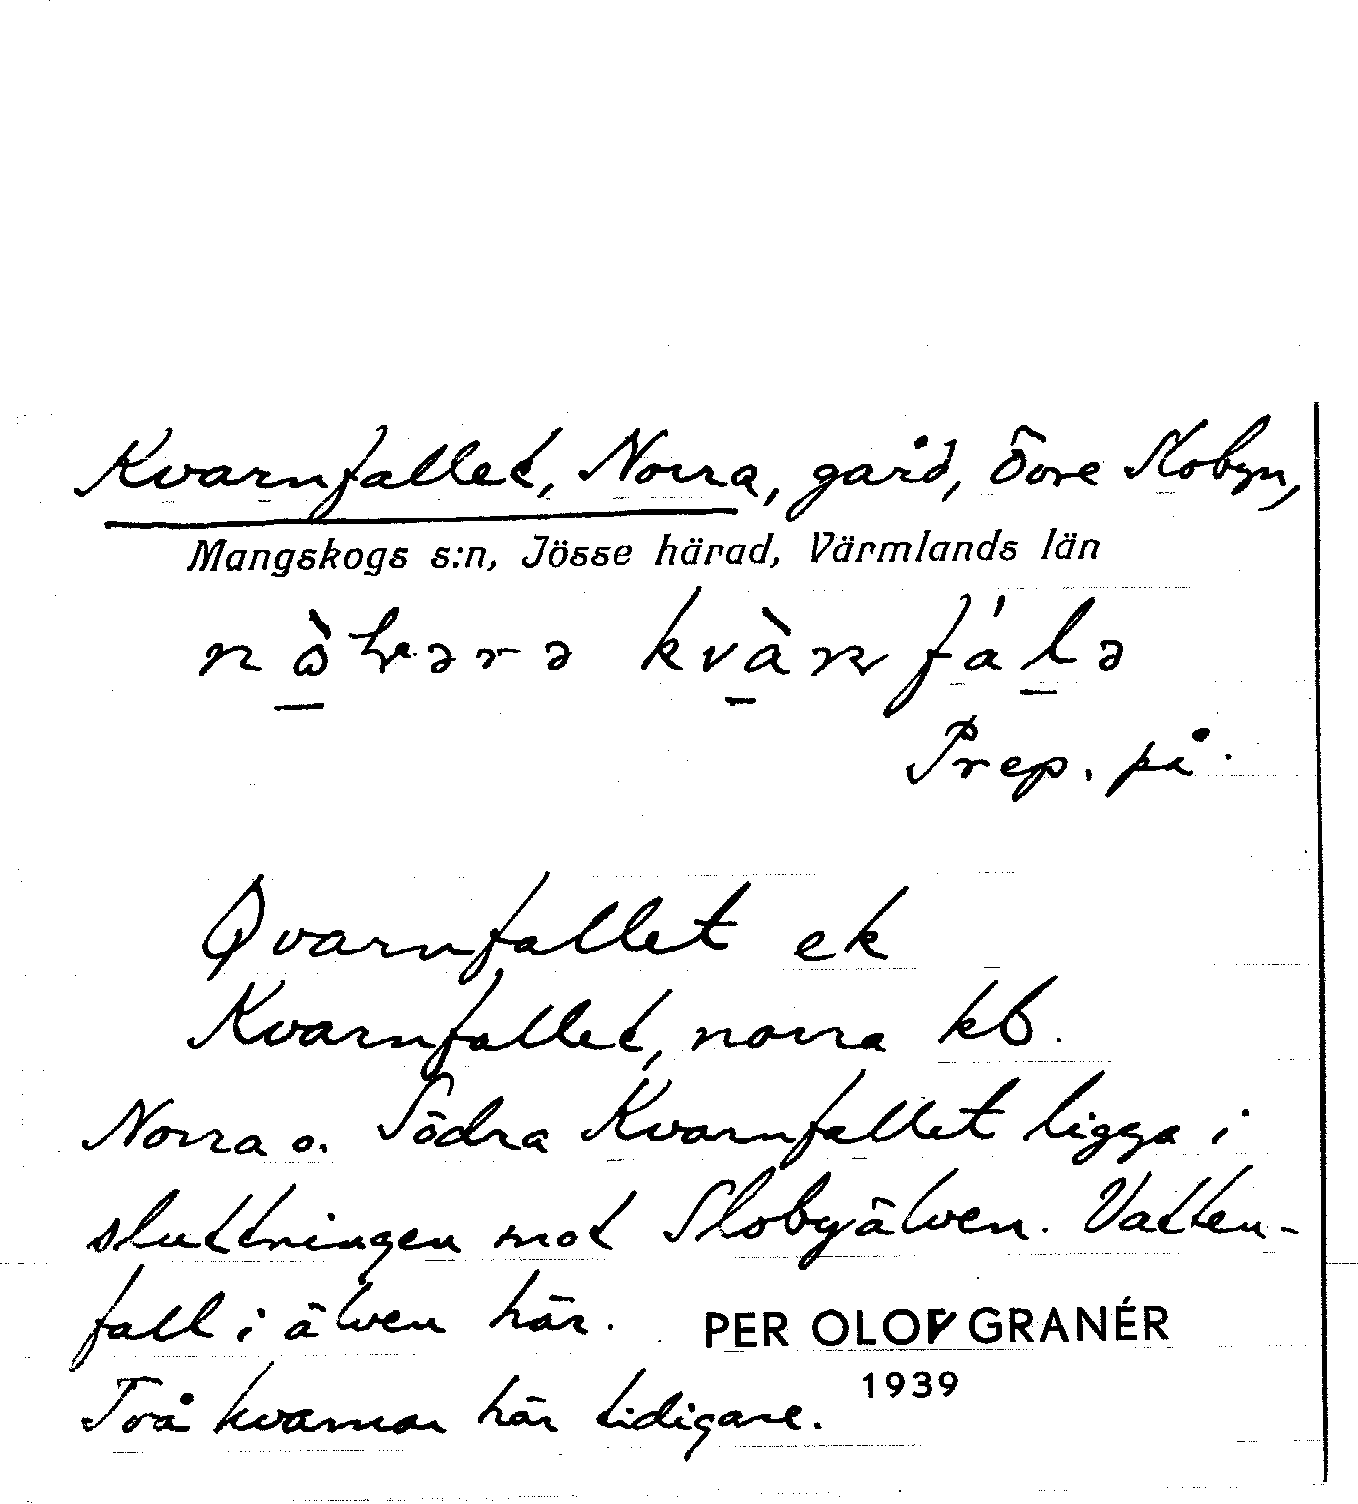 Kvarnfallet, Norra, gård, Övre Slobyn,
Mangskogs s:n, Jösse härad, Värmlands län
Prep. på.
Qvarnfallet ek
Kvarnfallet, norra kb.
Norra o. Södra Kvarnfallet ligga i
sluttningen mot Slobyälven. Vatten-
fall i älven här.
PER OLOF GRANÉR
1939
Två kvarnar här tidigare.